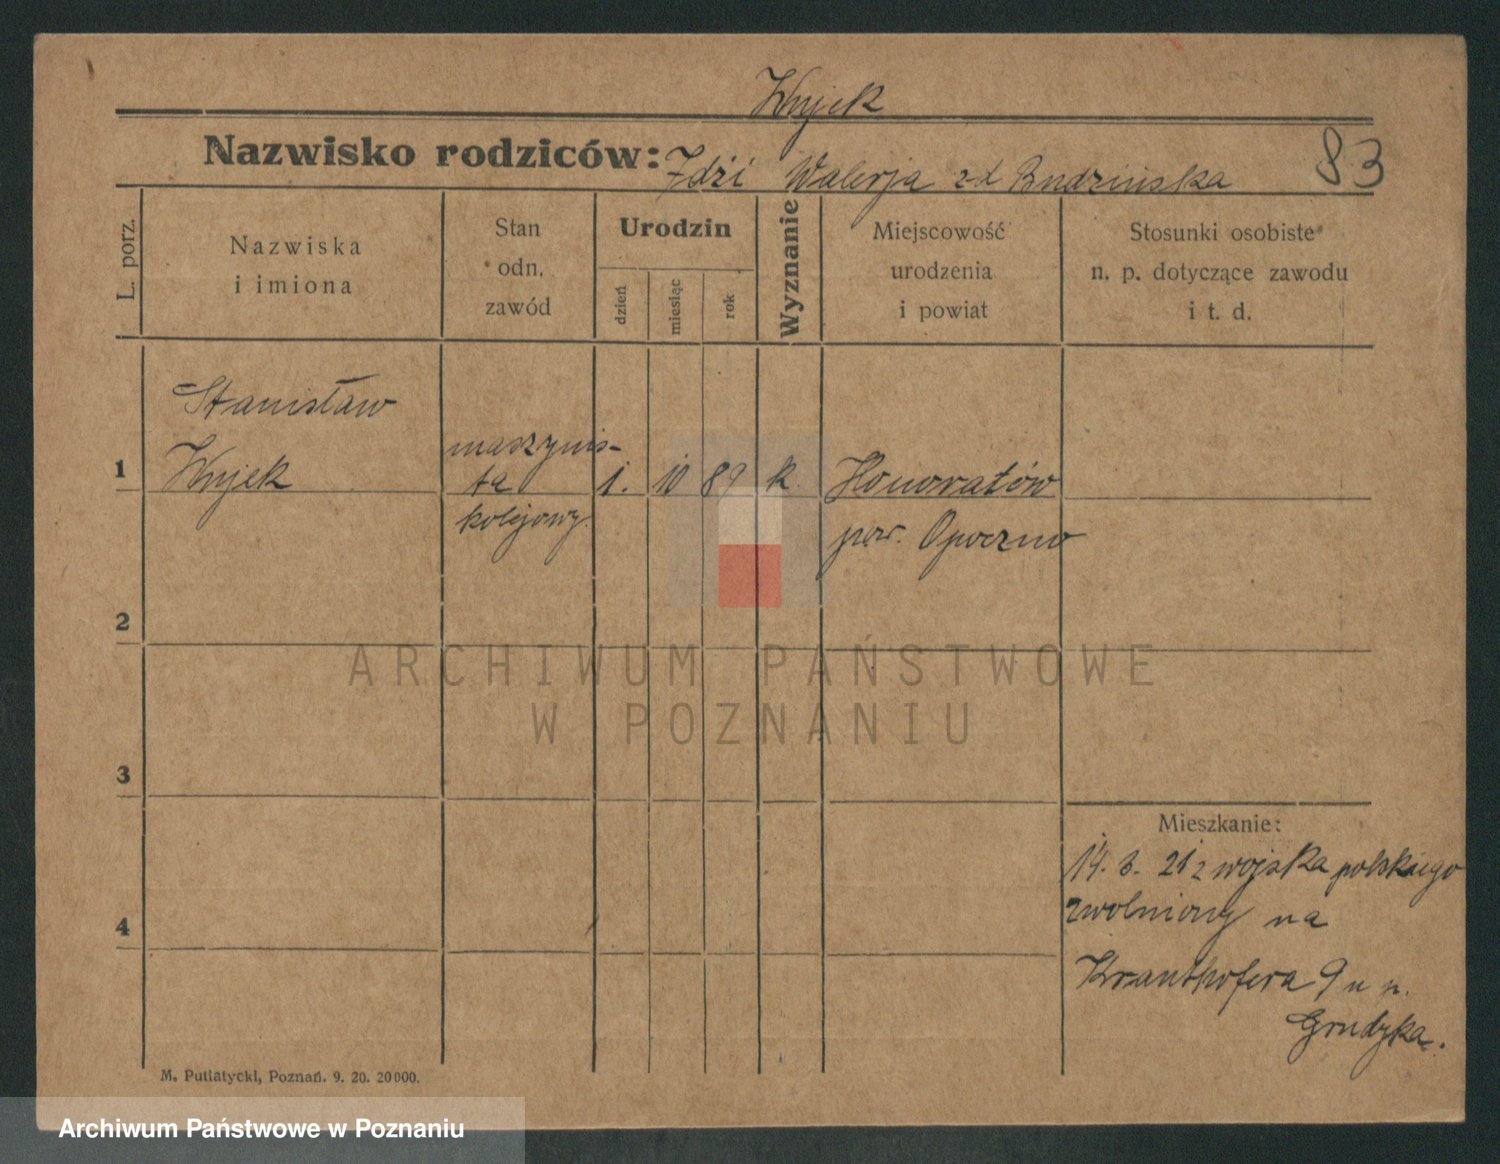 Wujek
Nazwisko rodziców: Idzi Walerja zd Budzińska 83
L. porz.
Nazwiska
i imiona
Stan
odn.
zawód
Urodzin
dzień
miesiąc
rok
Wyznanie
Miejscowość
urodzenia
i powiat
Stosunki osobiste
n. p. dotyczące zawodu
i t. d.
1
Stanisław
Wujek
maszynis-
ta
kolejowy.
1. 10 89 k.
Honoratów
pow. Opoczno
2
3
4
Mieszkanie:
14. 3. 21 z wojska polskiego
zwolniony na
Kranthofera 9 u p.
Grudyka.
M. Putiatycki, Poznań. 9. 20. 20000.
ARCHIWUM PAŃSTWOWE
W POZNANIU
Archiwum Państwowe w Poznaniu